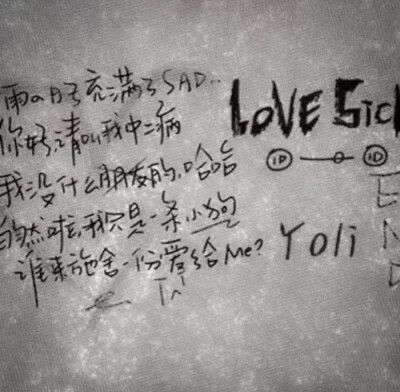 雨の日子充满了SAD..
你好,请叫我中二病
我没什么朋友的,哈哈
的然啦,我只是一条小狗
谁来施舍一份爱给Me?
LOVE SICK
ID ID
Yoli
END